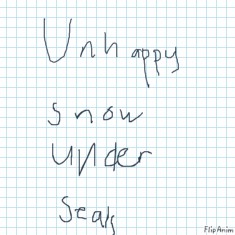 Unhappy
snow
under
Seals
FlipAnim